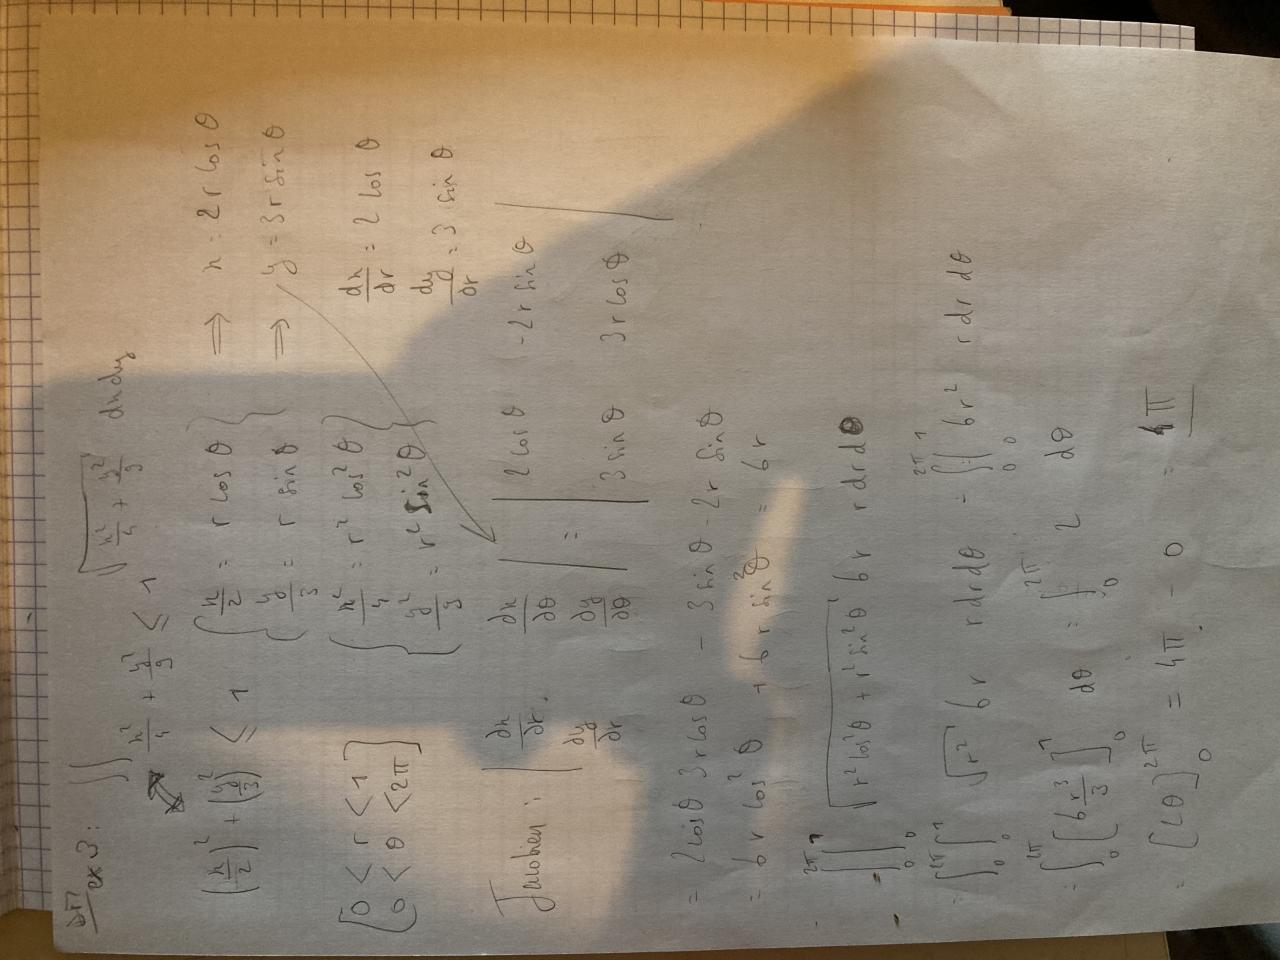 DM
ex 3:
∬ x²/4 + y²/9 ≤ 1 √(x²/4 + y²/9) dxdy
(x/2)² + (y/3)² ≤ 1
{ x/2 = r cos θ } ⇒ x = 2 r cos θ
{ y/3 = r sin θ } ⇒ y = 3 r sin θ
[ 0 < r < 1 ]
[ 0 < θ < 2π ]
{ x²/4 = r² cos² θ }
{ y²/9 = r² sin² θ }
dx/dr = 2 cos θ
dy/dr = 3 sin θ
Jacobien : | dx/dr dx/dθ | = | 2 cos θ -2r sin θ |
| dy/dr dy/dθ | | 3 sin θ 3r cos θ |
= 2 cos θ 3r cos θ - 3 sin θ -2r sin θ
= 6r cos² θ + 6r sin² θ = 6r
= ∫₀^2π ∫₀^1 √(r² cos² θ + r² sin² θ) 6r r dr dθ
= ∫₀^2π ∫₀^1 √r² 6r r dr dθ = ∫₀^2π ∫₀^1 6r² r dr dθ
= ∫₀^2π [6r³/3]₀^1 dθ = ∫₀^2π 2 dθ
= [2θ]₀^2π = 4π - 0 = 4π